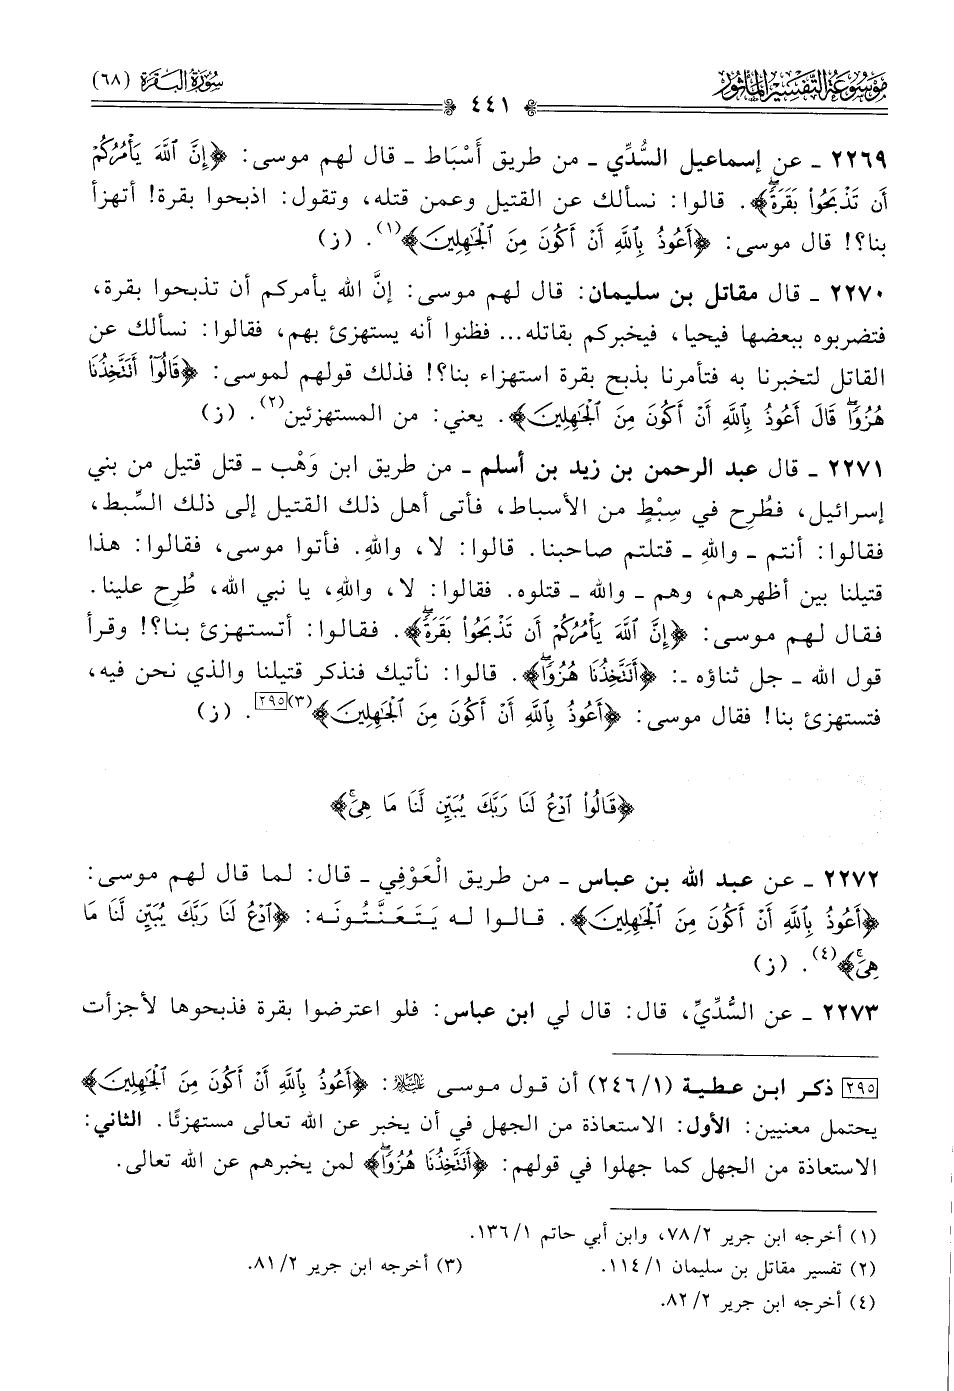 موسوعة التفسير المأثور
سورة البقرة (٦٨)
٤٤١
٢٢٦٩ ـ عن إسماعيل السُّدِّي ـ من طريق أَسْبَاط ـ قال لهم موسى: ﴿إِنَّ ٱللَّهَ يَأْمُرُكُمْ
أَن تَذْبَحُوا۟ بَقَرَةًۖ﴾. قالوا: نسألك عن القتيل وعمن قتله، وتقول: اذبحوا بقرة! أتهزأ
بنا؟! قال موسى: ﴿أَعُوذُ بِٱللَّهِ أَنْ أَكُونَ مِنَ ٱلْجَٰهِلِينَ﴾(١). (ز)
٢٢٧٠ ـ قال مقاتل بن سليمان: قال لهم موسى: إنَّ الله يأمركم أن تذبحوا بقرة،
فتضربوه ببعضها فيحيا، فيخبركم بقاتله... فظنوا أنه يستهزئ بهم، فقالوا: نسألك عن
القاتل لتخبرنا به فتأمرنا بذبح بقرة استهزاء بنا؟! فذلك قولهم لموسى: ﴿قَالُوٓا۟ أَتَتَّخِذُنَا
هُزُوًاۖ قَالَ أَعُوذُ بِٱللَّهِ أَنْ أَكُونَ مِنَ ٱلْجَٰهِلِينَ﴾. يعني: من المستهزئين(٢). (ز)
٢٢٧١ ـ قال عبد الرحمن بن زيد بن أسلم ـ من طريق ابن وَهْب ـ قتل قتيل من بني
إسرائيل، فطُرِح في سِبْطٍ من الأسباط، فأتى أهل ذلك القتيل إلى ذلك السِّبط،
فقالوا: أنتم ـ واللهِ ـ قتلتم صاحبنا. قالوا: لا، واللهِ. فأتوا موسى، فقالوا: هذا
قتيلنا بين أظهرهم، وهم ـ والله ـ قتلوه. فقالوا: لا، واللهِ، يا نبي الله، طُرِح علينا.
فقال لهم موسى: ﴿إِنَّ ٱللَّهَ يَأْمُرُكُمْ أَن تَذْبَحُوا۟ بَقَرَةًۖ﴾. فقالوا: أتستهزئ بنا؟! وقرأ
قول الله ـ جل ثناؤه ـ: ﴿أَتَتَّخِذُنَا هُزُوًاۖ﴾. قالوا: نأتيك فنذكر قتيلنا والذي نحن فيه،
فتستهزئ بنا! فقال موسى: ﴿أَعُوذُ بِٱللَّهِ أَنْ أَكُونَ مِنَ ٱلْجَٰهِلِينَ﴾(٣)[٢٩٥]. (ز)
﴿قَالُوا۟ ٱدْعُ لَنَا رَبَّكَ يُبَيِّن لَّنَا مَا هِىَۚ﴾
٢٢٧٢ ـ عن عبد الله بن عباس ـ من طريق الْعَوْفِي ـ قال: لما قال لهم موسى:
﴿أَعُوذُ بِٱللَّهِ أَنْ أَكُونَ مِنَ ٱلْجَٰهِلِينَ﴾. قالوا له يَتَعَنَّتُونَه: ﴿ٱدْعُ لَنَا رَبَّكَ يُبَيِّن لَّنَا مَا
هِىَۚ﴾(٤). (ز)
٢٢٧٣ ـ عن السُّدِّيِّ، قال: قال لي ابن عباس: فلو اعترضوا بقرة فذبحوها لأجزأت
[٢٩٥] ذكر ابن عطية (١/٢٤٦) أن قول موسى عليه السلام: ﴿أَعُوذُ بِٱللَّهِ أَنْ أَكُونَ مِنَ ٱلْجَٰهِلِينَ﴾
يحتمل معنيين: الأول: الاستعاذة من الجهل في أن يخبر عن الله تعالى مستهزئًا. الثاني:
الاستعاذة من الجهل كما جهلوا في قولهم: ﴿أَتَتَّخِذُنَا هُزُوًاۖ﴾ لمن يخبرهم عن الله تعالى.
(١) أخرجه ابن جرير ٢/٧٨، وابن أبي حاتم ١/١٣٦.
(٢) تفسير مقاتل بن سليمان ١/١١٤. (٣) أخرجه ابن جرير ٢/٨١.
(٤) أخرجه ابن جرير ٢/٨٢.